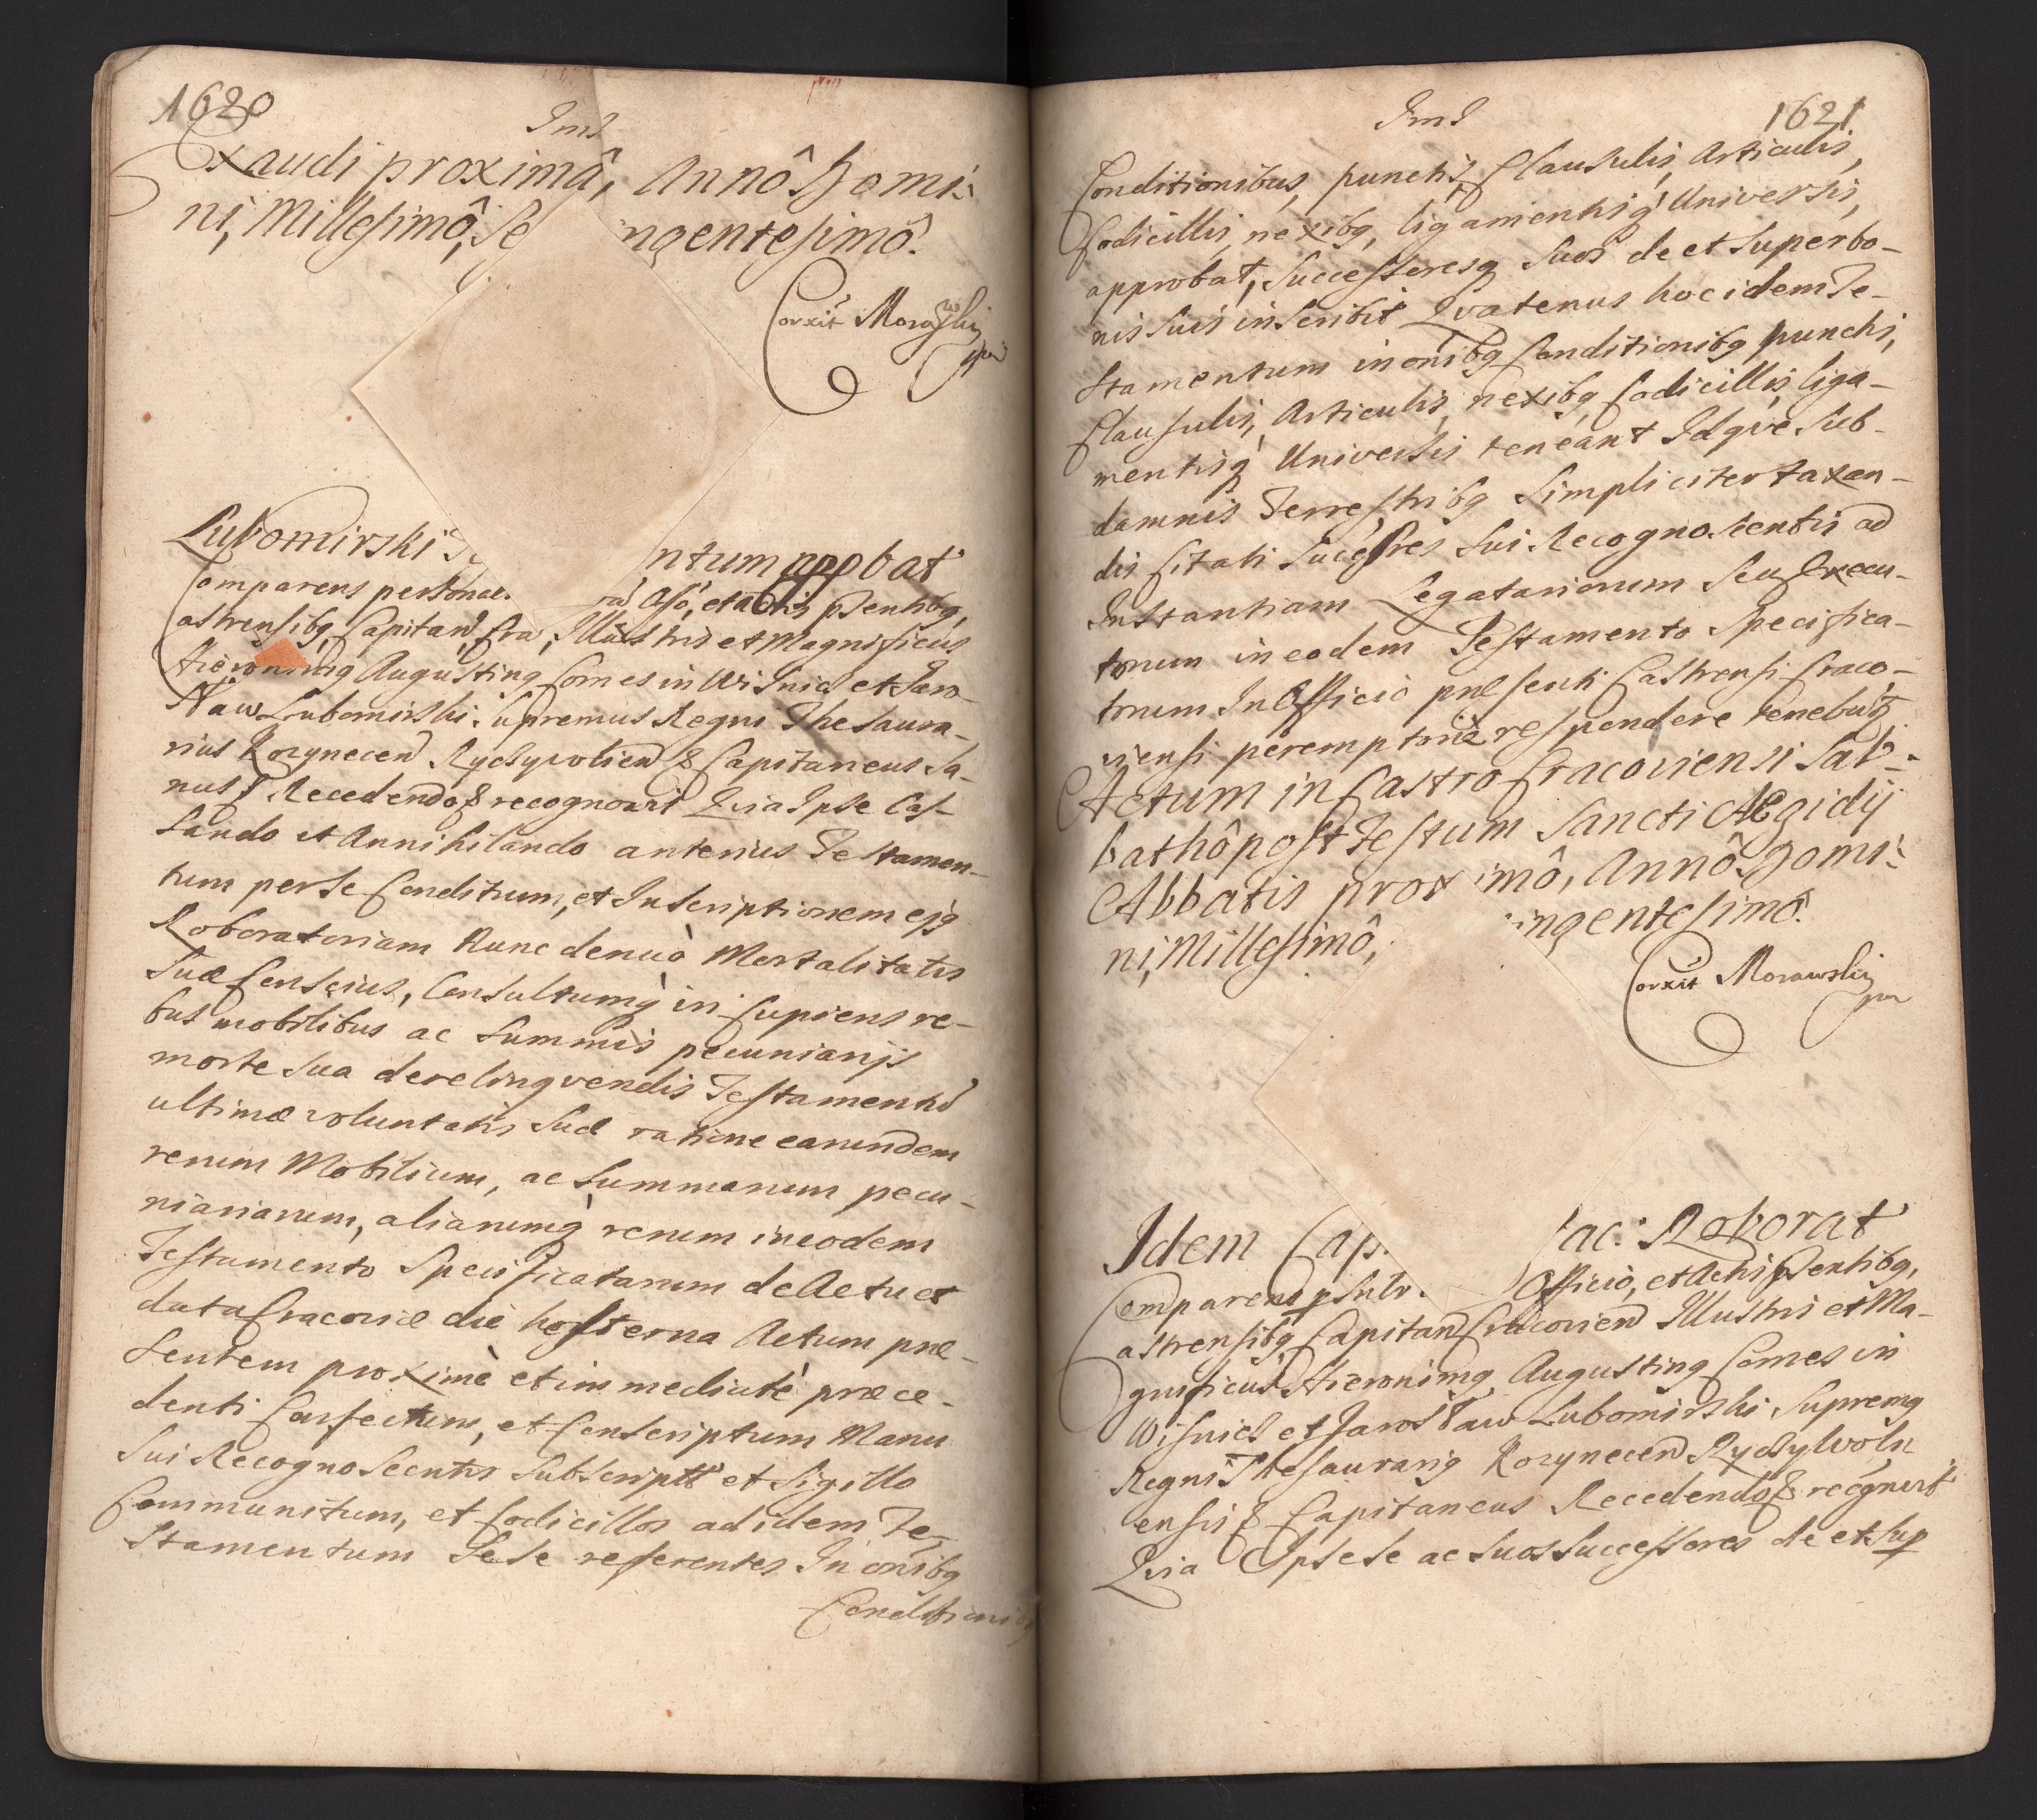 1620
Ims
Exaudi proximâ, Annô Domi:
ni, Millesimô, Se ngentesimô.
Corxit Morawskij
mpa
Lubomirski Te ntum appbat
Comparens personal. rã Offo, et actis pñtibq,
astrensibq Capitan, Cra, Illustris et Magnificus
Hieronimq Augustinq Comes in Wisnicz et Jaro-
sław Lubomirski Supremus Regni Thesaura-
rius Kozynecen Ryczywolien & Capitaneus Sa-
nus & Recedendo & recognovit Qvia Ipse Cas-
sando et Annihilando anterius Testamen-
tum per se Conditum, et Inscriptionem ejq
Roboratoriam Nunc denuò Mortalitatis
Suæ Conscius, Consultumq in Cupiens re-
bus mobilibus ac Summis pecuniarijs
morte sua derelinqvendis Testamentũ
ultimæ voluntatis Suæ ratione earundem
rerum Mobilium, ac Summarum pecu-
niariarum, aliarumq rerum in eodem
Testamento Specificatarum de Actu et
data Cracoviæ die hesterna Actum præ-
sentem proxime et immediatè præce-
denti Confectum, et Conscriptum Manu
Sui Recognoscentis Subscriptũ et Sigillo
Communitum, et Codicillos ad idem Te-
stamentum Sese referentes In oñibq
Conditioni
Ims
1621
Conditionibus, punctis, Clausulis, Articulis,
Codicillis, nexibq, ligamentisq Universis,
approbat, Successoresq Suos de et Super bo-
nis Suis inscribit Qvatenus hoc idem Te-
stamentum in oñibq Conditionibq punctis,
Clausulis, Articulis, nexibq Codicillis, liga-
mentisq Universis teneant Idqve Sub
damnis Terrestribq Simpliciter taxan-
dis Citati Succeßres Sui Recognoscentis ad
Instantiam Legatariorum Seu Execu-
torum in eodem Testamento Specifica-
torum In Officio præsenti Castrensi Craco-
viensi peremptoriè respondere tenebũt
Actum in Castro Cracoviensi Sab:
bathô post Festum Sancti Ægidij
Abbatis prox imô, Annô Domi:
ni, Millesimô, ingentesimô.
Corxit Morawskij
mpa
Idem Cap. ac: Roborat
Comparens psnlr. Officio, et Actis pñtibq,
astrensibq Capitan Cracovien Illustris et Ma-
gnificus Hieronimq Augustinq Comes in
Wisnicz et Jarosław Lubomirski Supremq
Regni Thesaurariq Kozynecen Ryczylvoln
ensis & Capitaneus Recedendo & recognvit
Qvia Ipse se ac suos Successores de et sup